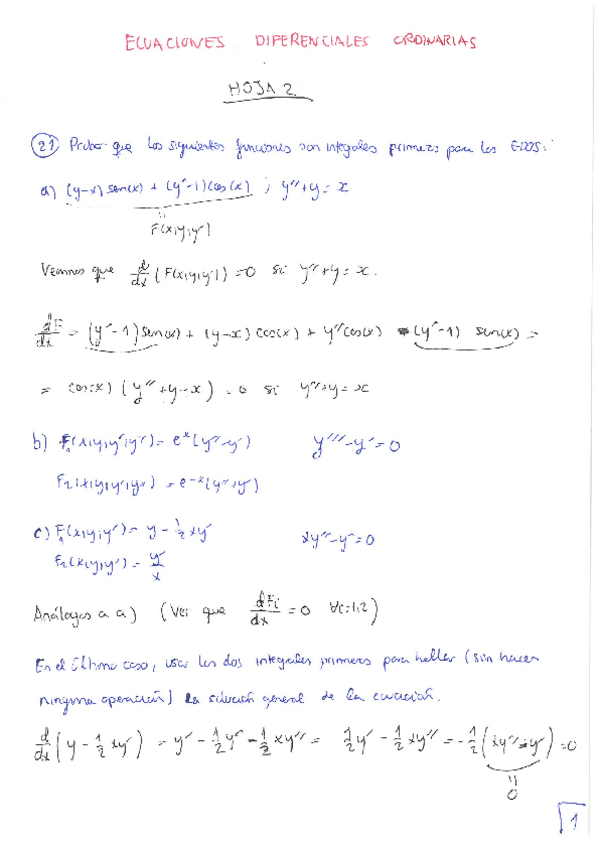 ECUACIONES DIFERENCIALES ORDINARIAS
HOJA 2
21 Probar que las siguientes funciones son integrales primeras para las EDOS:
a) (y-x) sen(x) + (y'-1) cos(x) ; y''+y = x
"
F(x,y,y')
Veamos que d/dx (F(x,y,y')) = 0 si y''+y = x.
dF/dx = (y'-1) sen(x) + (y-x) cos(x) + y'' cos(x) - (y'-1) sen(x) =
= cos(x) (y''+y-x) = 0 si y''+y = x
b) F1(x,y,y',y'') = e^x (y''-y') y'''-y' = 0
F2(x,y,y',y'') = e^-x (y''+y')
c) F1(x,y,y') = y - 1/2 xy' xy''-y' = 0
F2(x,y,y') = y'/x
Análogas a a) (Ver que dFi/dx = 0 ∀i=1,2)
En el último caso, usar las dos integrales primeras para hallar (sin hacer
ninguna operación) la solución general de la ecuación.
d/dx (y - 1/2 xy') = y' - 1/2 y' - 1/2 xy'' = 1/2 y' - 1/2 xy'' = -1/2 (xy''-y') = 0
"
0
1